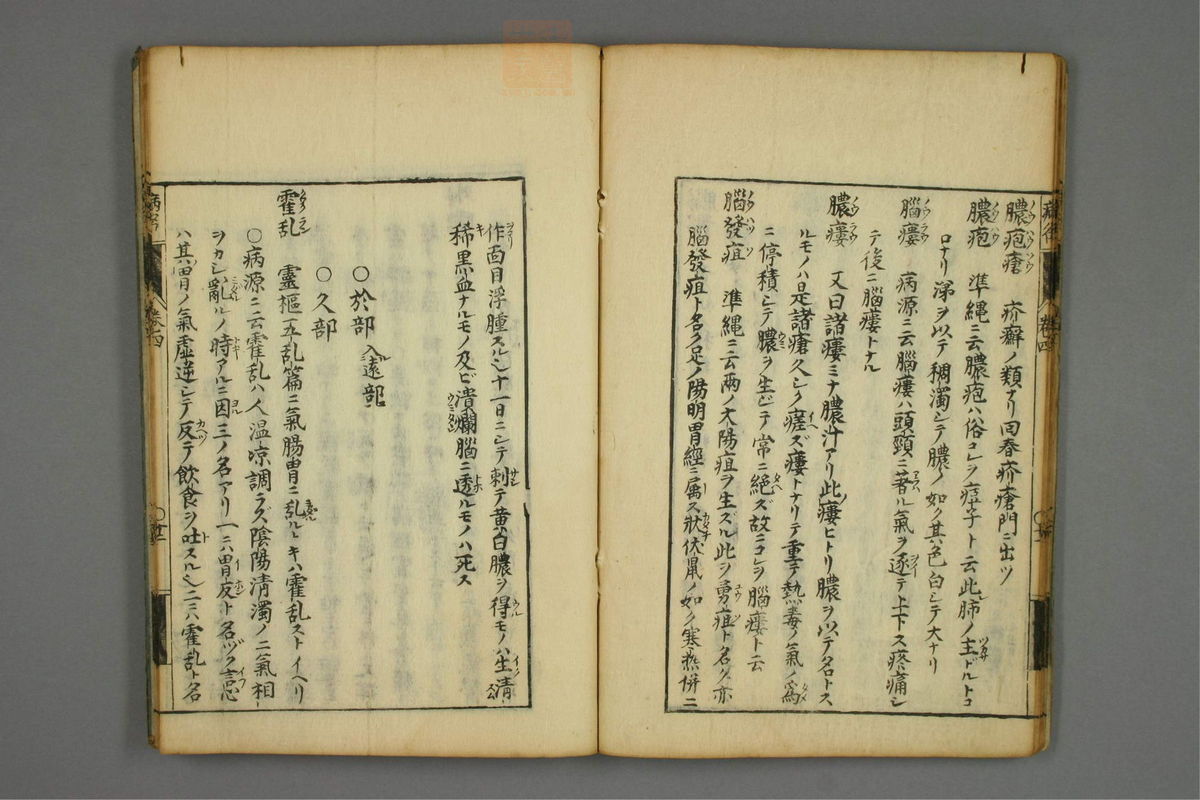 膿疱瘡 疥癬ノ類ナリ回春疥瘡門ニ出ツ
膿疱 準縄ニ云膿疱ハ俗コレヲ痘子ト云此肺ノ主ドルトコ
ロナリ涕ヲ以テ稠濁シテ膿ノ如ク其色白シテ大ナリ
腦瘻 病源ニ云腦瘻ハ頭頸ニ著ル氣ヲ逐テ上下ス疼痛シ
テ後ニ腦瘻トナル
膿瘻 又曰諸瘻ミナ膿汁アリ此瘻ヒトリ膿ヲ以テ名トス
ルモノハ是諸瘡久シク瘥ズ瘻トナリテ重テ熱毒ノ氣ノ為
ニ停積シテ膿ヲ生ジテ常ニ絶ズ故ニコレヲ腦瘻ト云
腦發疽 準縄ニ云兩ノ太陽疽ヲ生ズル此ヲ勇疽ト名ク亦
腦發疽ト名ク足ノ陽明胃經ニ属ス狀伏鼠ノ如ク寒熱併ニ
作面目浮腫スル也十一日ニシテ刺テ黄白膿ヲ得モノハ生清
稀黒血ナルモノ及ビ潰爛腦ニ透ルモノハ死ス
○於部 入遠部
○久部
霍乱 靈樞五乱篇ニ氣腸胃ニ乱ルヽキハ霍乱ストイヘリ
○病源ニ云霍乱ハ人温凉調ラズ陰陽清濁ノ二氣相
ヲカシ亂ルノ時アルニ因三ノ名アリ一ニハ胃反ト名ヅク言心
ハ其胃ノ氣虚逆シテ反テ飲食ヲ吐スル也二ニハ霍乱ト名